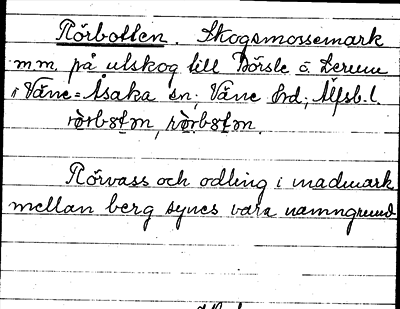 Rörbotten. Skogsmossemark
m.m. på utskog till Börsle o.
i Väne-Åsaka sn; Väne hd; Älfsb. l.
Rörvass och odling i madmark
mellan berg synes vara namngrund